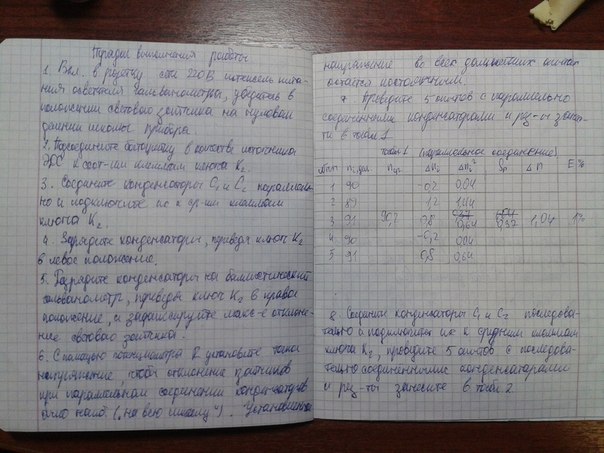 Порядок выполнения работы
1. Вкл. в розетку сети 220В штепсель пита-
ния осветителя гальванометра, убедитесь в
положении светового зайчика на нулевом
делении шкалы прибора.
2. Подсоедините батарею в качестве источника
ЭДС к соот-им клеммам ключа К₂.
3. Соедините конденсаторы С₁ и С₂ параллель-
но и подключите их к ср-им клеммам
ключа К₂.
4. Зарядите конденсаторы, приведя ключ К₂
в левое положение.
5. Разрядите конденсаторы на баллистический
гальванометр, приведя ключ К₂ в правое
положение, и зафиксируйте макс-е отклоне-
ние светового зайчика.
6. С помощью потенциометра R установите такое
напряжение, чтобы отклонение зайчиков
при параллельном соединении конденсаторов
было
("на всю шкалу"). Установленное
напряжение во всех дальнейших опытах
остаётся постоянным.
7. Проведите 5 опытов с параллельно
соединёнными конденсаторами и рез-ты занеси-
те в табл 1.
Табл. 1 (параллельное соединение)
№п/п nᵢ, дел. nср Δnᵢ Δnᵢ² Sр Δn E%
1 90 -0,2 0,04
2 89 1,2 1,44
3 91 90,2 0,8 0,64 1,04 1%
4 90 -0,2 0,04
5 91 0,8 0,64
8. Соедините конденсаторы С₁ и С₂ последова-
тельно и подключите их к средним клеммам
ключа К₂, проведите 5 опытов с последова-
тельно соединёнными конденсаторами
и рез-ты занесите в табл 2.